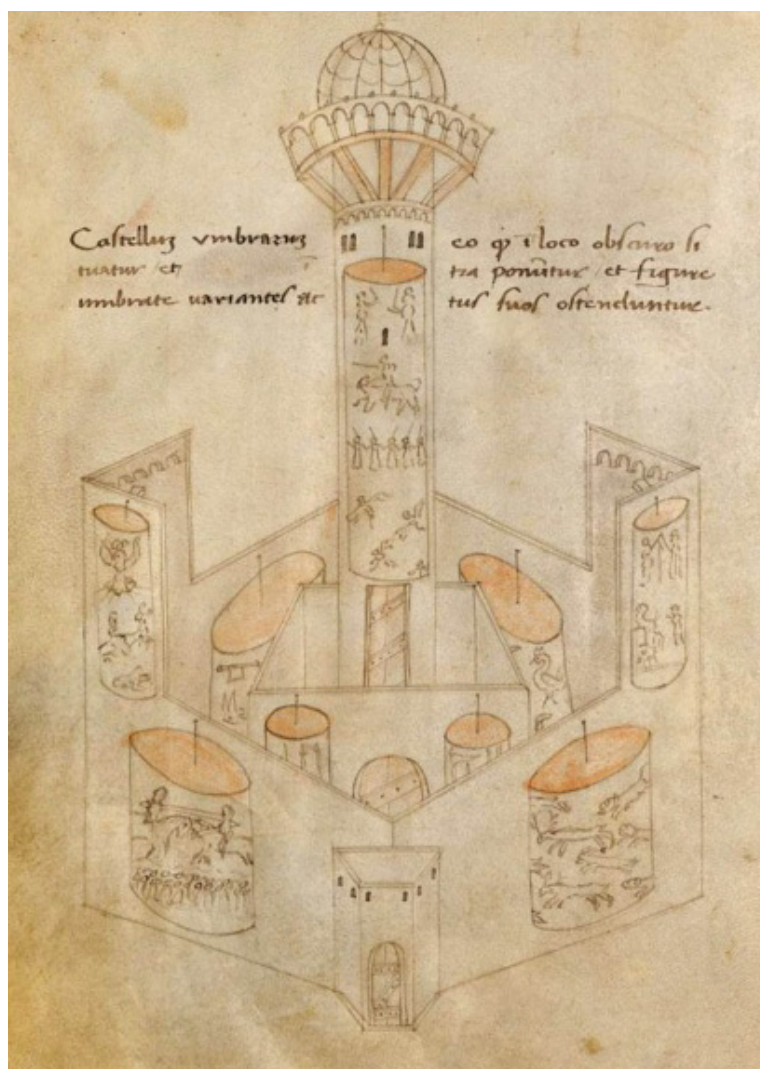 Castelluʒ vmbraruʒ eo qꝫ ī loco obscuro si
tuatur et tra ponūtur et figure
umbrate variantes ac tus suos ostenduntur.